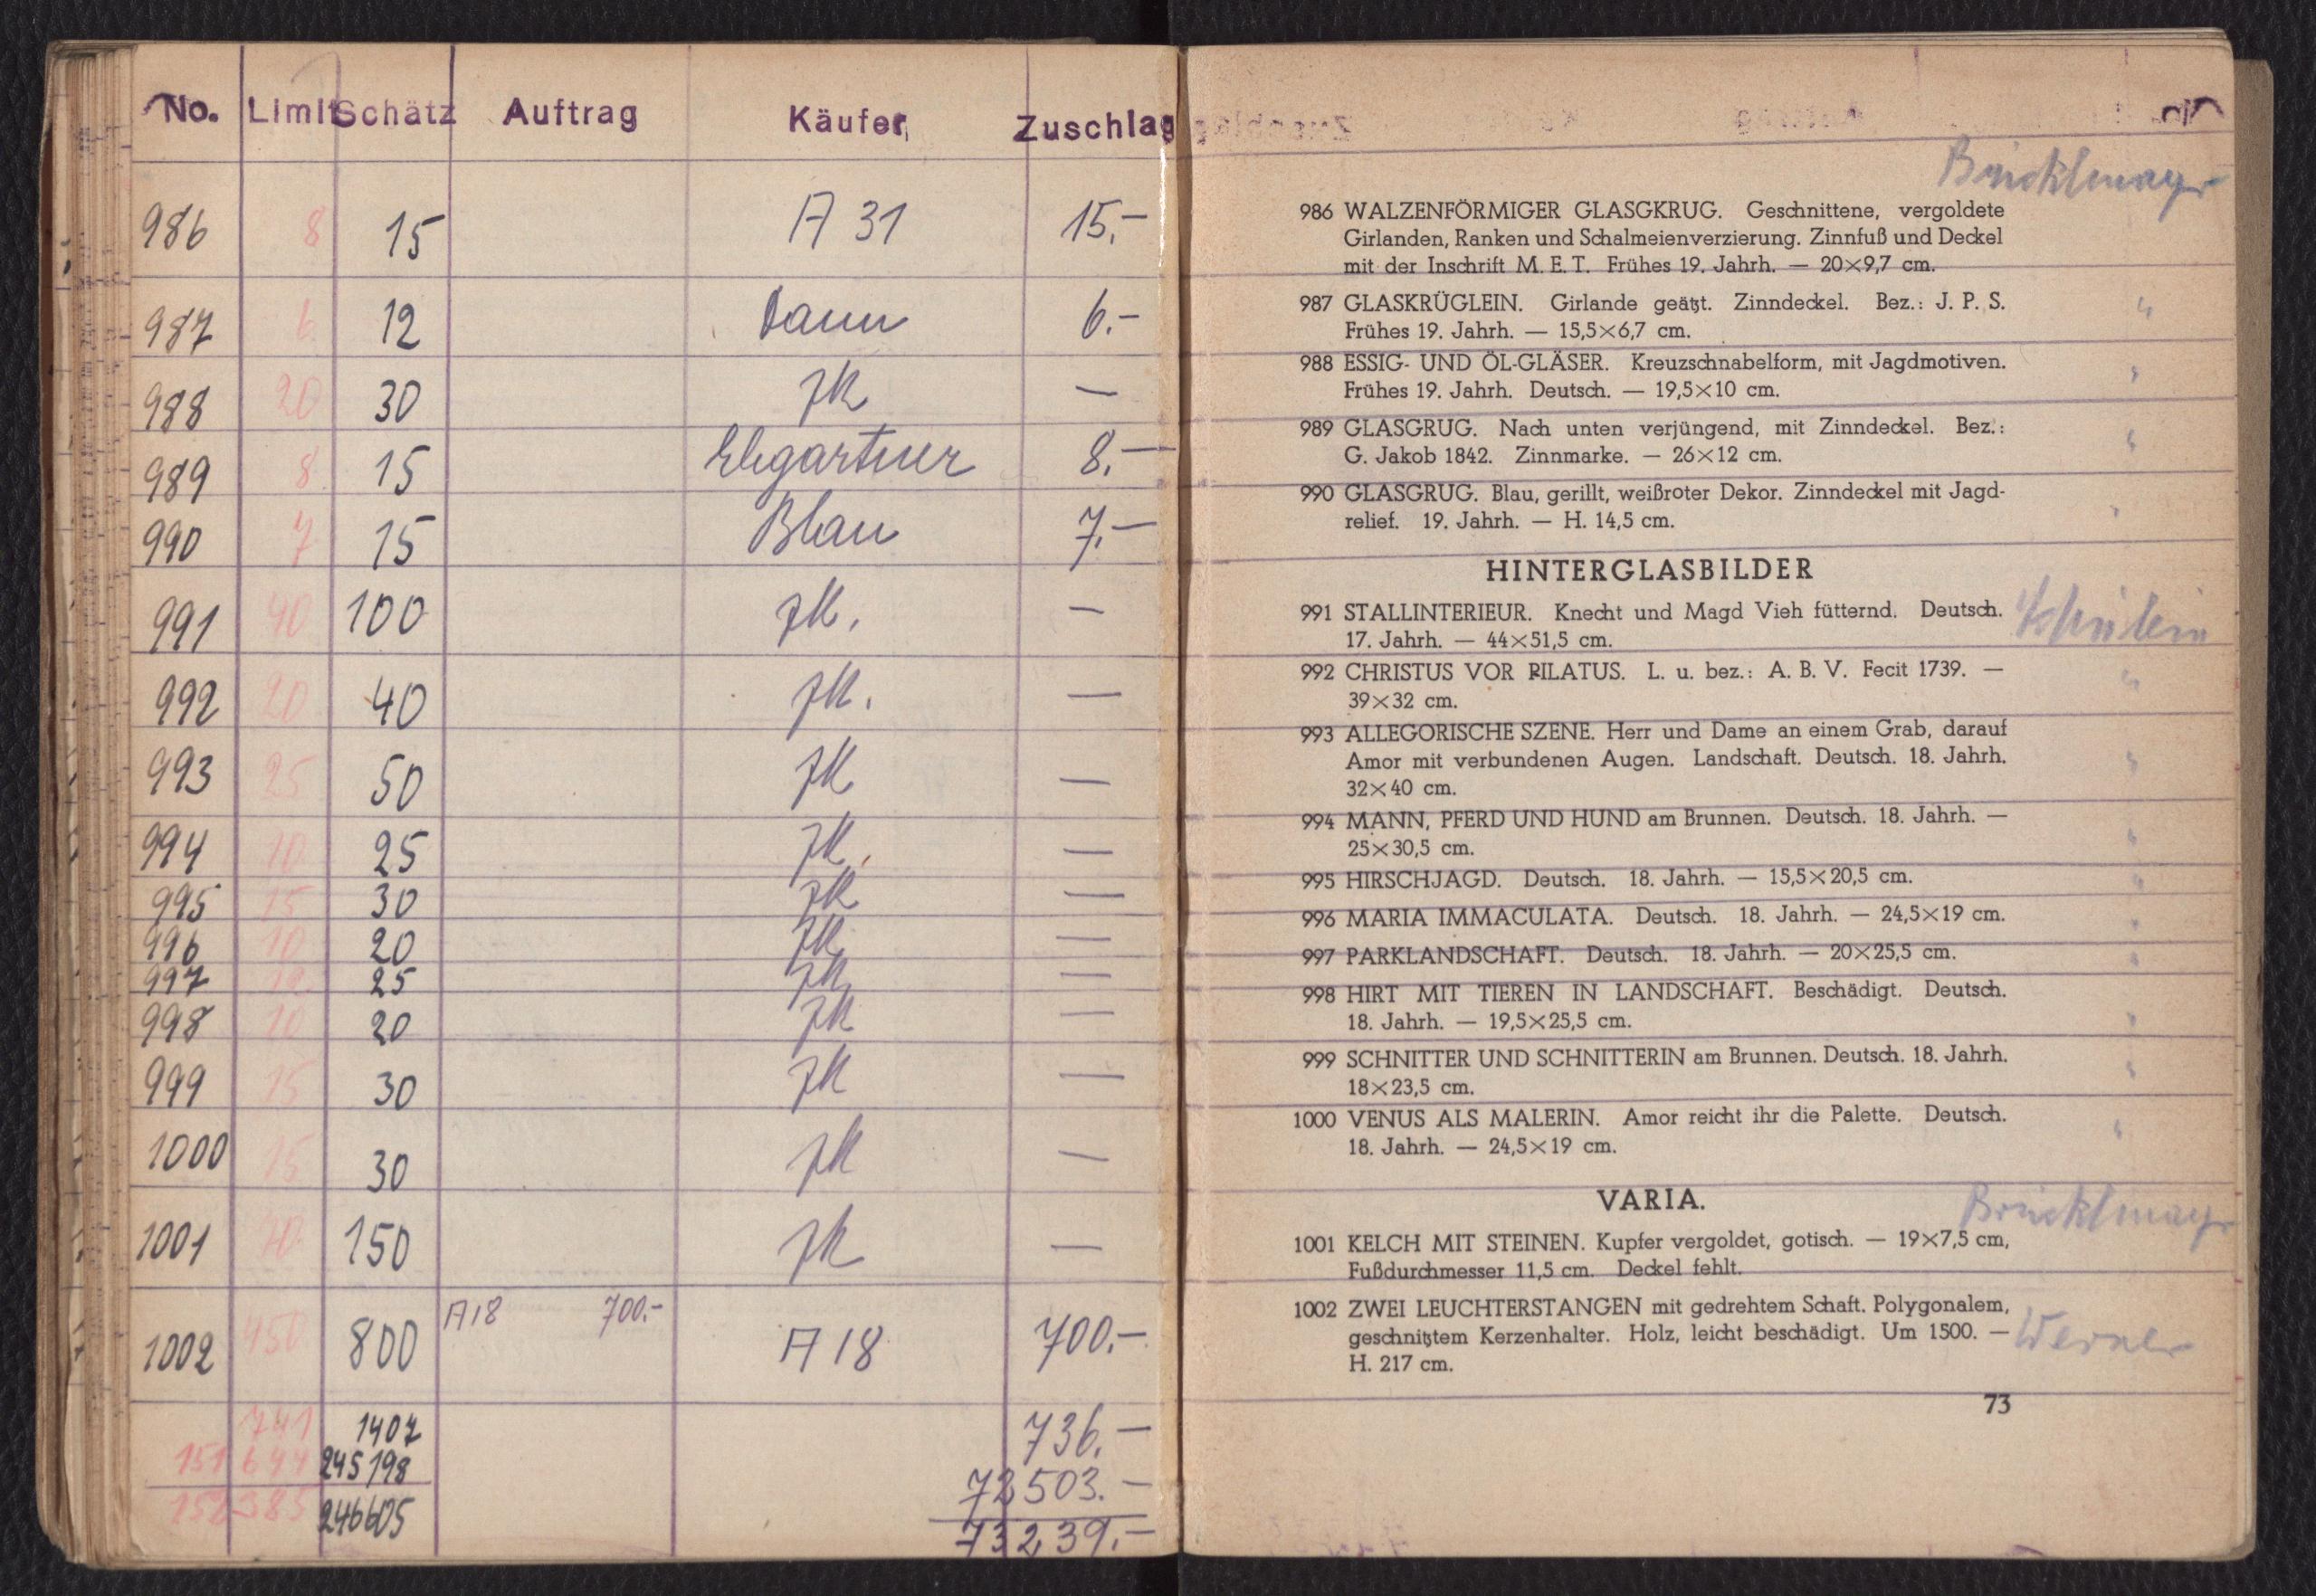 No. Limit Schätz Auftrag Käufer Zuschlag
986 8 15 A 31 15.-
987 6 12 Dann 6.-
988 20 30 zk —
989 8 15 Ehgartner 8.—
990 7 15 Blau 7.—
991 40 100 zk. —
992 20 40 zk. —
993 25 50 zk —
994 10 25 zk. —
995 15 30 zk —
996 10 20 zk —
997 12 25 zk —
998 10 20 zk —
999 15 30 zk —
1000 15 30 zk —
1001 70 150 zk —
1002 450 800 A18 700.- A 18 700.-
741 1407 736.—
151 644 245 198 72503.—
152385 246605 73239.—
Brücklmayr
986 WALZENFÖRMIGER GLASGKRUG. Geschnittene, vergoldete
Girlanden, Ranken und Schalmeienverzierung. Zinnfuß und Deckel
mit der Inschrift M. E. T. Frühes 19. Jahrh. — 20×9,7 cm.
987 GLASKRÜGLEIN. Girlande geätzt. Zinndeckel. Bez.: J. P. S. "
Frühes 19. Jahrh. — 15,5×6,7 cm.
988 ESSIG- UND ÖL-GLÄSER. Kreuzschnabelform, mit Jagdmotiven. "
Frühes 19. Jahrh. Deutsch. — 19,5×10 cm.
989 GLASGRUG. Nach unten verjüngend, mit Zinndeckel. Bez.: "
G. Jakob 1842. Zinnmarke. — 26×12 cm.
990 GLASGRUG. Blau, gerillt, weißroter Dekor. Zinndeckel mit Jagd- "
relief. 19. Jahrh. — H. 14,5 cm.
HINTERGLASBILDER
991 STALLINTERIEUR. Knecht und Magd Vieh fütternd. Deutsch.
17. Jahrh. — 44×51,5 cm.
992 CHRISTUS VOR PILATUS. L. u. bez.: A. B. V. Fecit 1739. — "
39×32 cm.
993 ALLEGORISCHE SZENE. Herr und Dame an einem Grab, darauf
Amor mit verbundenen Augen. Landschaft. Deutsch. 18. Jahrh. "
32×40 cm.
994 MANN, PFERD UND HUND am Brunnen. Deutsch. 18. Jahrh. — "
25×30,5 cm.
995 HIRSCHJAGD. Deutsch. 18. Jahrh. — 15,5×20,5 cm. "
996 MARIA IMMACULATA. Deutsch. 18. Jahrh. — 24,5×19 cm. "
997 PARKLANDSCHAFT. Deutsch. 18. Jahrh. — 20×25,5 cm. "
998 HIRT MIT TIEREN IN LANDSCHAFT. Beschädigt. Deutsch. "
18. Jahrh. — 19,5×25,5 cm.
999 SCHNITTER UND SCHNITTERIN am Brunnen. Deutsch. 18. Jahrh. "
18×23,5 cm.
1000 VENUS ALS MALERIN. Amor reicht ihr die Palette. Deutsch. "
18. Jahrh. — 24,5×19 cm.
VARIA.
Brücklmayr
1001 KELCH MIT STEINEN. Kupfer vergoldet, gotisch. — 19×7,5 cm,
Fußdurchmesser 11,5 cm. Deckel fehlt.
1002 ZWEI LEUCHTERSTANGEN mit gedrehtem Schaft. Polygonalem,
geschnitztem Kerzenhalter. Holz, leicht beschädigt. Um 1500. — Werner
H. 217 cm.
73